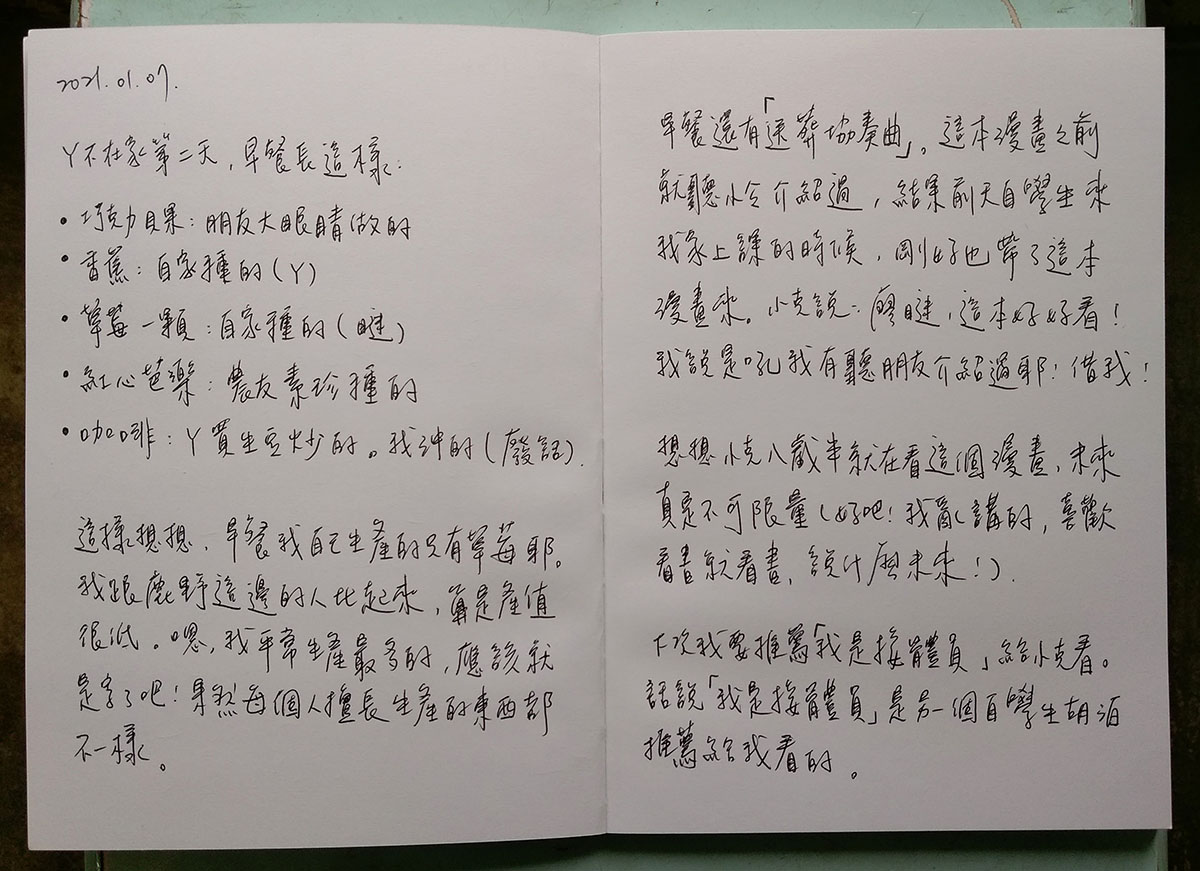 2021.01.07.
Y不在家第二天，早餐長這樣：
• 巧克力貝果：朋友大眼睛做的
• 香蕉：自家種的（Y）
• 草莓一顆：自家種的（瞇）
• 紅心芭樂：農友素珍種的
• 咖啡：Y買生豆炒的。我沖的（廢話）.
這樣想想，早餐我自己生產的只有草莓耶。
我跟鹿野這邊的人比起來，算是產值
很低。嗯，我平常生產最多的，應該就
是字了吧！果然每個人擅長生產的東西都
不一樣。
早餐還有「送葬協奏曲」。這本漫畫之前
就聽小令介紹過，結果前天自學生來
我家上課的時候，剛好也帶了這本
漫畫來。小克說：廖瞇，這本好好看！
我說是吼我有聽朋友介紹過耶！借我！
想想小克八歲半就在看這個漫畫，未來
真是不可限量（好吧！我亂講的，喜歡
看書就看書，說什麼未來！）.
下次我要推薦「我是接體員」給小克看。
話說「我是接體員」是另一個自學生胡
推薦給我看的。